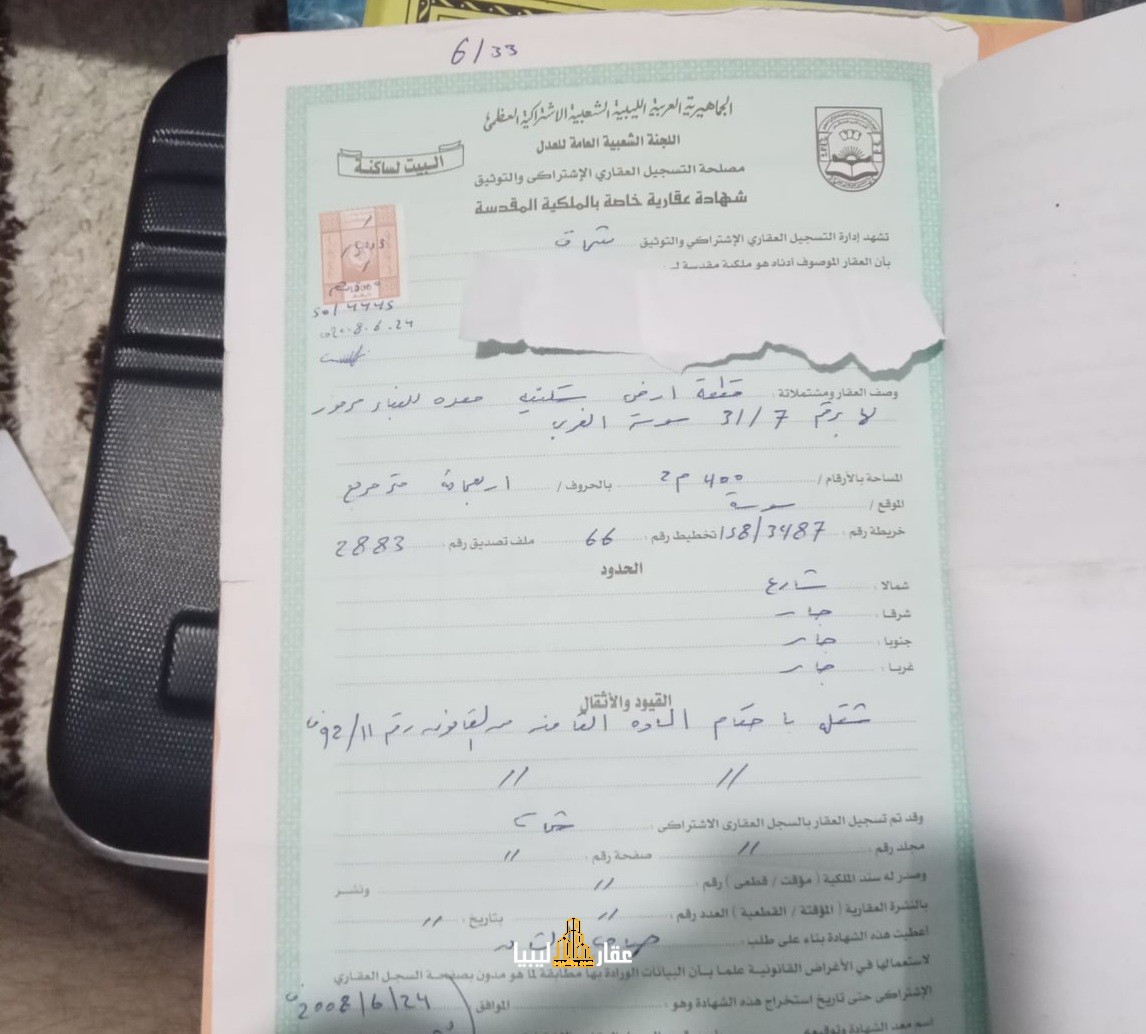 6/33
الجماهيرية العربية الليبية الشعبية الاشتراكية العظمى
اللجنة الشعبية العامة للعدل
البيت لساكنة
مصلحة التسجيل العقاري الإشتراكى والتوثيق
شهادة عقارية خاصة بالملكية المقدسة
تشهد إدارة التسجيل العقاري الإشتراكي والتوثيق
بأن العقار الموصوف أدناه هو ملكية مقدسة لـ
2008.6.24
وصف العقار ومشتملاتة : قطعة ارض سكنيه معده للبناء مرموز
لها برقم 7/31 سوسة الغربي
المساحة بالأرقام / 400 م2 بالحروف / اربعمائة متر مربع
الموقع / سوسة
خريطة رقم : 158/3487 تخطيط رقم : 66 ملف تصديق رقم : 2883
الحدود
شمالا : شارع
شرقا : جار
جنوبا : جار
غربا : جار
القيود والأثقال
مثقله باحكام الماده الثامنه من القانون رقم 92/11 ف
// //
وقد تم تسجيل العقار بالسجل العقاري الاشتراكى :
مجلد رقم : // صفحة رقم : //
وصدر له سند الملكية ( مؤقت / قطعى ) رقم : // ونشر
بالنشرة العقارية ( المؤقتة / القطعية ) العدد رقم : // بتاريخ : //
أعطيت هذه الشهادة بناء على طلب :
عقار ليبيا
لاستعمالها في الأغراض القانونية علما بأن البيانات الورادة بها مطابقة لما هو مدون بصفحة السجل العقاري
الإشتراكى حتى تاريخ استخراج هذه الشهادة وهو : الموافق 2008/6/24 ف
اسم معد الشهادة وتوقيعه